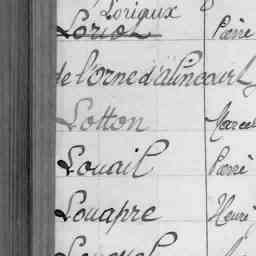 Lorioux
Loriol Pierre
de l'Orne d'Alincourt
Lotton Marcel
Louail Pierre
Louapre Henri